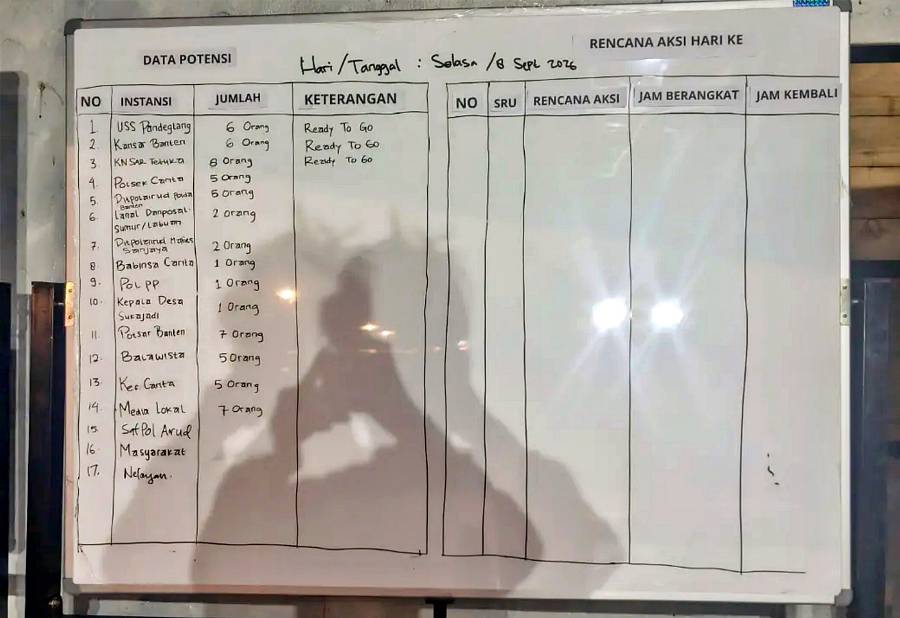 DATA POTENSI
RENCANA AKSI HARI KE
Hari/Tanggal : Selasa /8 Sept 2026
NO INSTANSI JUMLAH KETERANGAN
1. USS Pandeglang 6 Orang Ready To Go
2. Kansar Banten 6 Orang Ready To Go
3. KN SAR Tetuka 8 Orang Ready To Go
4. Polsek Carita 5 Orang
5. Ditpolairud Polda Banten 5 Orang
6. Lanal Danposal
Sumur/Labuan 2 Orang
7. Ditpolairud Mabes
Sanjaya 2 Orang
8 Babinsa Carita 1 Orang
9. Pol PP 1 Orang
10. Kepala Desa
Sukajadi 1 Orang
11. Potsar Banten 7 Orang
12. Balawista 5 Orang
13. Kec. Carita 5 Orang
14. Media Lokal 7 Orang
15. SatPol Airud
16. Masyarakat
17. Nelayan.
NO SRU RENCANA AKSI JAM BERANGKAT JAM KEMBALI